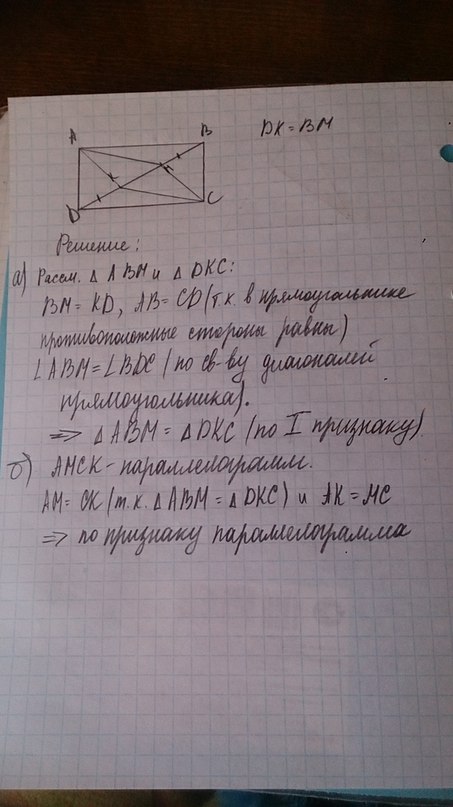 A
B
DK = BM
K
M
D
C
Решение:
а) Рассм. △ ABM и △ DKC:
BM = KD, AB = CD (т.к. в прямоугольнике
противоположные стороны равны)
∠ABM = ∠BDC (по св-ву диагоналей
прямоугольника).
=> △ ABM = △ DKC (по I признаку).
б) AMCK - параллелограмм.
AM = CK (т.к. △ ABM = △ DKC) и AK = MC
=> по признаку параллелограмма